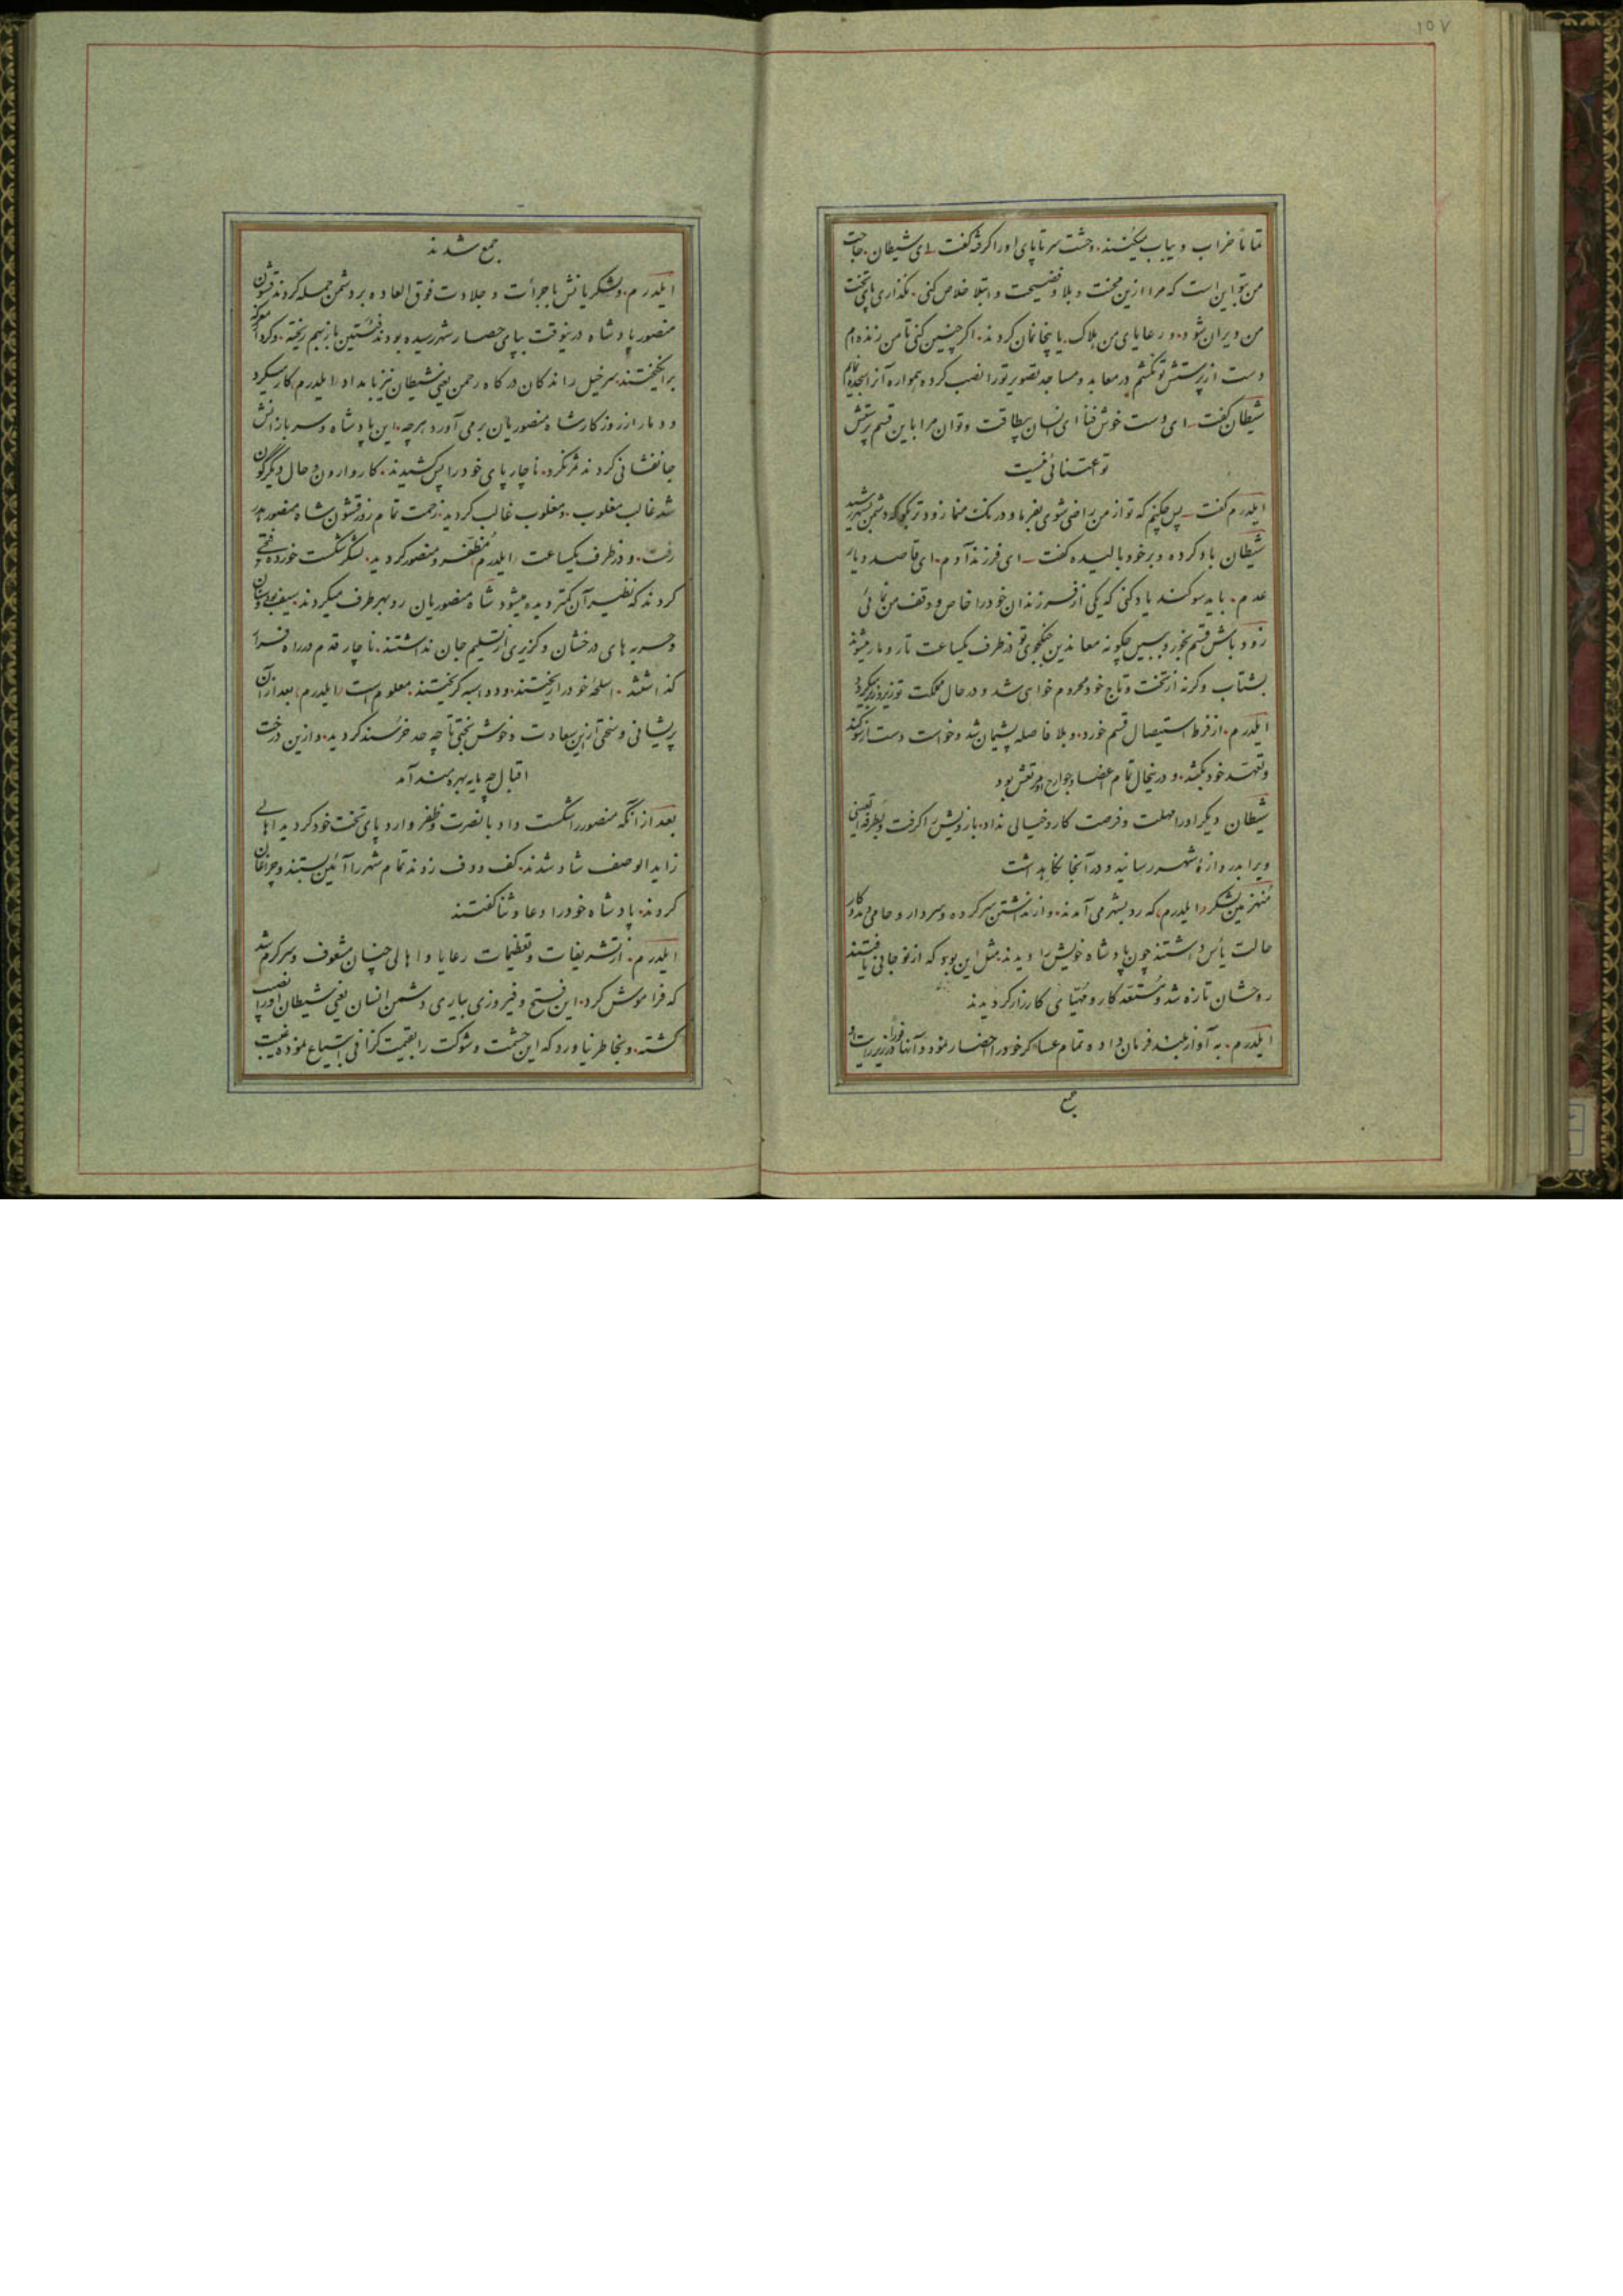 ۱۵۷
تماماً خراب و یباب میکنند. وحشت سرتاپای اورا کرفته کفت ـ ای شیطان. حاجت
من بتو این است که مرا ازین محنت و بلا و فضیحت و ابتلا خلاص کنی. نکذاری پای تخت
من ویران شود. و رعایای من هلاک یا بیخانمان کردند. اکر چنین کنی تا من زنده ام
دست از پرستش تو نکشم در معابد و مساجد تصویر تورا نصب کرده همواره آنرا سجده نمایم
شیطان کفت ـ ای دست خوش فنا ای انسان بیطاقت و توان مرا باین قسم پرستش
تو اعتنائی نیست
ایلدرم کفت ـ پس چکنم که تو از من راضی شوی بفرما و درنک منما زودتر بکو که دشمن بشهر رسید
شیطان باد کرده و برخود بالیده کفت ـ ای فرزند آدم. ای قاصد دیار
عدم. باید سوکند یاد کنی که یکی از فرزندان خودرا خاص و وقف من نمائی
زود باش قسم بخور و ببین چکونه معاندین جنکجوی تو در ظرف یکساعت تار و مار میشوند
بشتاب وکرنه از تخت و تاج خود محروم خواهی شد و در حال مملکت تو زیر و زبر میکردد
ایلدرم. از فرط استیصال قسم خورد. و بلا فاصله پشیمان شد و خواست دست از سوکند
و تعهّد خود بکشد. و درینحال تمام اعضا و جوارح او مرتعش بود
شیطان دیکر اورا مهلت و فرصت کار و خیالی نداد. بازویش را کرفت و بطرفة العینی
ویرا بدروازهٔ شهر رسانید و در آنجا نکاهداشت
منهزمین لشکر (ایلدرم) که روبشهر می آمدند. و از نداشتن سرکرده و سردار و حامی و مددکار
حالت یأس داشتند چون پادشاه خویش را دیدند مثل این بود که از نو جانی یافتند
روحشان تازه شد و مستعد کار و مهیّای کارزار کردیدند
ایلدرم. به آواز بلند فرمان داده تمام عساکر خودرا احضار نمود و آنها فوراً در زیر رایت او
جمع
جمع شدند
ایلدرم. و لشکریانش با جرأت و جلادت فوق العاده بر دشمن حمله کردند قشون
منصور پادشاه درینوقت بپای حصار شهر رسیده بودند فئتین باز بهم ریخته. و کرد از معرکه
برانکیختند. سرخیل راندکان درکاه رحمن یعنی شیطان نیز بامداد (ایلدرم) کار میکرد
و دمار از روزکار شاه منصوریان برمی آورد هرچه. این پادشاه و سربازانش
جانفشانی کردند ثمر نکرد. ناچار پای خودرا پس کشیدند. کار وارون و حال دیکرکون
شد غالب مغلوب. و مغلوب غالب کردید. زحمت تمام روز قشون شاه منصور هدر
رفت. و در ظرف یکساعت (ایلدرم) مُظفّر و منصور کردید. لشکر شکست خورده فتحی
کردند که نظیر آن کمتر دیده میشود شاه منصوریان رو بهر طرف میکردند. سیف بود و سنان
و حربه های درخشان و کزیری از تسلیم جان نداشتند. ناچار قدم در راه فرار
کذاشتند. اسلحهٔ خودرا ریختند. و دواسبه کریختند. معلوم است (ایلدرم) بعد از آن
پریشانی و سختی ازین سعادت و خوش بختی تا چه حد خرسند کردید. و ازین درخت
اقبال چه پایه بهره مند آمد
بعد از آنکه منصور را شکست داد با نصرت و ظفر وارد پای تخت خود کردید اهالی
زاید الوصف شاد شدند. کف و دف زدند تمام شهر را آئین بستند و چراغان
کردند. پادشاه خودرا دعا و ثنا کفتند
ایلدرم. از تشریفات و تعظیمات رعایا و اهالی چنان مشعوف و سرکرم شد
که فراموش کرد. این فتح و فیروزی بیاری دشمن انسان یعنی شیطان اورا نصیب
کشته. و بخاطر نیاورد که این حشمت و شوکت را بقیمت کزافی ابتیاع نموده